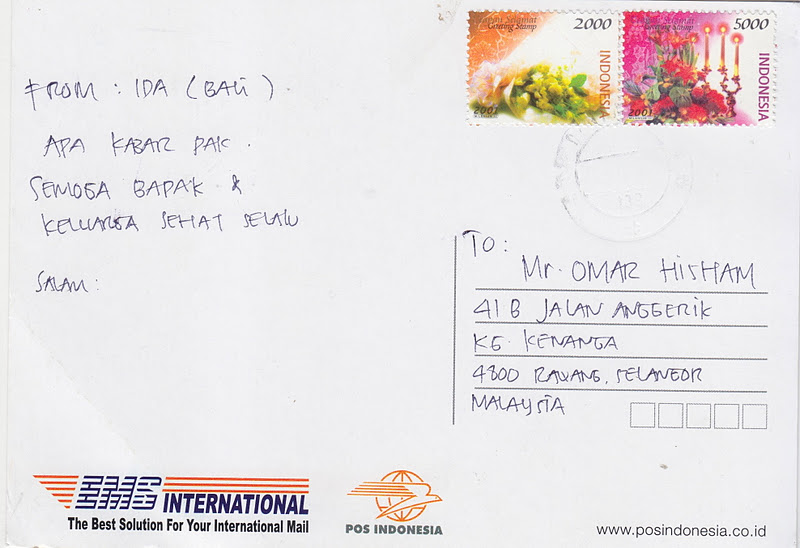 Ucapan Selamat
Greeting Stamp
2000
INDONESIA
2001
Ucapan Selamat
Greeting Stamp
5000
INDONESIA
2001
FROM : IDA (BALI)
APA KABAR PAK.
SEMOGA BAPAK &
KELUARGA SEHAT SELALU
SALAM :
TO :
Mr. OMAR HISHAM
41 B JALAN ANGGERIK
KG. KENANGA
4800 RAWANG, SELANGOR
MALAYSIA
EMS INTERNATIONAL
The Best Solution For Your International Mail
POS INDONESIA
www.posindonesia.co.id